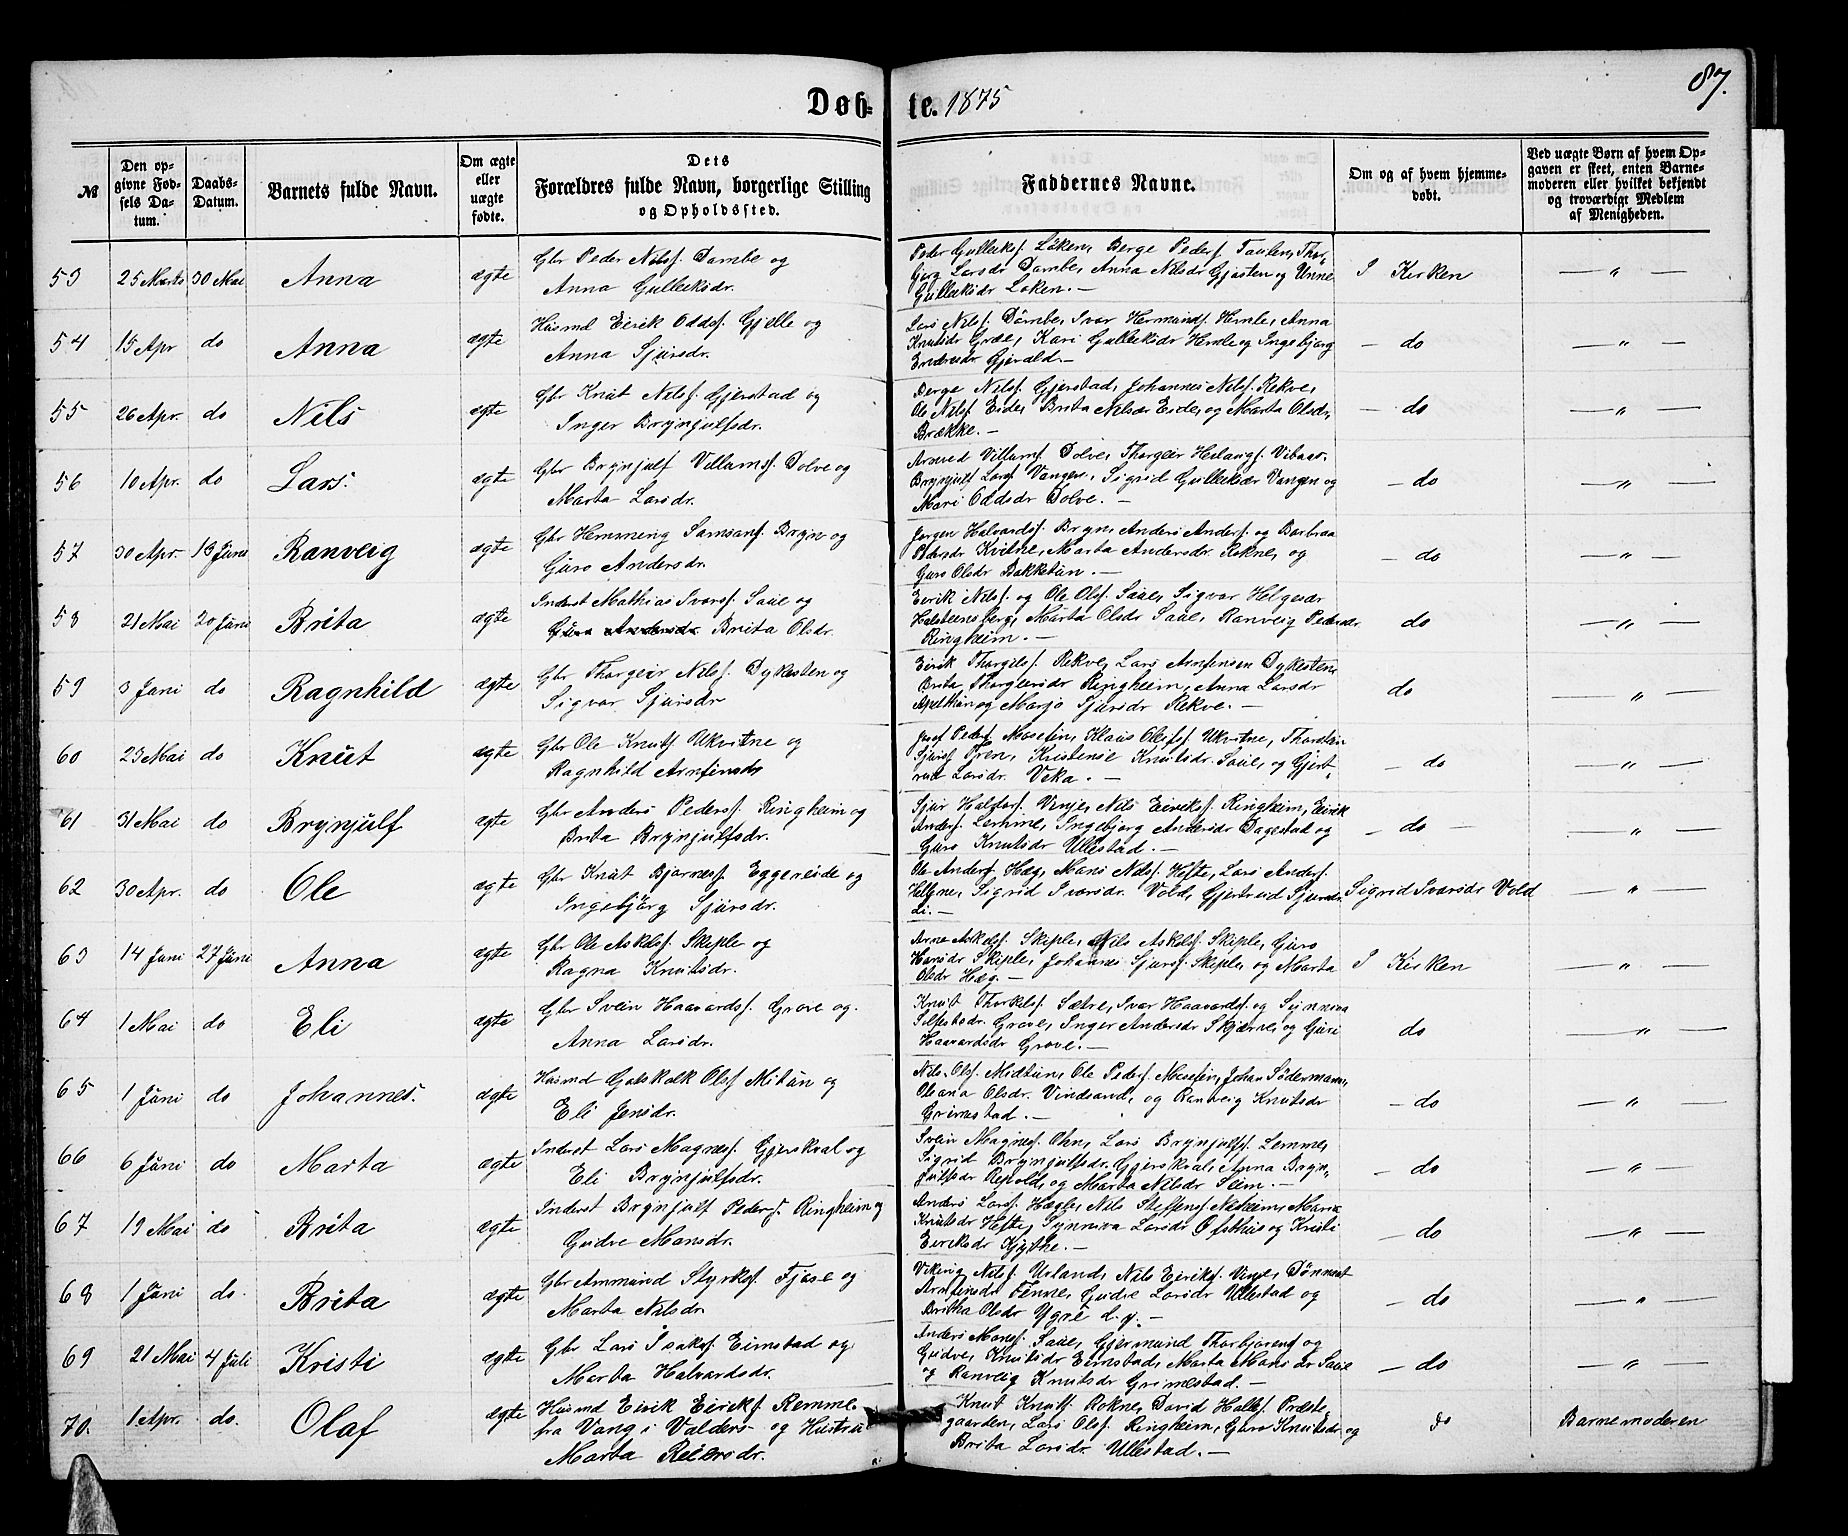 87.
Døb- te. 1875
№
Den op-
givne Fød-
sels Da-
tum.
Daabs-
Datum.
Barnets fulde Navn.
Om ægte
eller
uægte
fødte.
Dets
Forældres fulde Navn, borgerlige Stilling
og Opholdssted.
Faddernes Navne.
Om og af hvem hjemme-
døbt.
Ved uægte Børn af hvem Op-
gaven er skeet, enten Barne-
moderen eller hvilket bekjendt
og troværdigt Medlem
af Menigheden.
53 25 Marts 30 Mai Anna ægte
Gbr Peder Nilsf. Dømbe og
Anna Gulleiksdr.
Peder Gulleiksf. Løken, Berge Pedersf Taulen, Thor-
bjørg Larsdr Dømbe, Anna Nilsdr Gjøsten og Unne
Gulleiksdr Løken. —
I Kirken — " —
54 15 Apr do Anna ægte
Husmd Eirik Oddsf. Gjelle og
Anna Sjursdr.
Lars Nilsf. Dømbe, Ivar Hermundsf. Hemle, Anna
Knutsdr Græe, Kari Gulleiksdr Hemle og Ingebjørg
Endresdr Gjerald. —
— do — " —
55 26 Apr. do Nils ægte
Gbr Knut Nilsf. Gjerstad og
Inger Brynjulfsdr.
Berge Nilsf. Gjerstad, Johannes Nilsf. Rekve,
Ole Nilsf Eide, Brita Nilsdr Eide, og Marta Olsdr,
Brække. —
— do — " —
56 10 Apr. do Lars. ægte
Gbr Brynjulf Villumsf. Dolve og
Marta Larsdr.
Villumsf Dolve, Thorgeir Herlaugsf.
Brynjulf Larsf Vangen, Sigrid Gulleiksdr Vangen og
Mari Oddsdr Dolve. —
— do — " —
57 30 Apr. 13 Juni Ranveig ægte
Gbr Hemming Samsonsf. Bryn og
Guro Andersdr.
Jørgen Halvardsf. Bryn, Anders Andersf. og Barbraa
Pedersdr Kvitne, Marta Andersdr. Rokne, og
Guro Olsdr Bakketun. —
— do — " —
58 21 Mai 20 Juni Brita ægte
Inderst Mathias Ivarsf. Saue og
Guro Andersdr Brita Olsdr.
Eirik Nilsf. og Ole Olsf. Saue, Sigvor Helgesdr
Halsteensberg, Marta Olsdr Saue, Ranveig Pedersdr
Ringheim. —
do — " —
59 3 Juni do Ragnhild ægte
Gbr Thorgeir Nilsf. Dykesten og
Sigvor Sjursdr
Eirik Thorgilsf. Rekve, Lars Arnfinsen Dykesten,
Brita Thorgeirsdr Ringheim, Anna Larsdr
og Marjo Sjursdr Rekve. —
do " —
60 23 Mai do Knut ægte
Gbr Ole Knutsf Ukvitne og
Ragnhild Arnfinsdr
Josef Pedersf Mosefin, Klaus Olefsf Ukvitne, Thorstein
Sjursf Tren, Kristense Knutsdr. Saue, og Gjert-
rud Larsdr. Veka. —
— do — " —
61 31 Mai do Brynjulf ægte
Gbr Anders Pedersf. Ringheim og
Brita Brynjulfsdr.
Sjur Halstorf. Vinje, Nils Eiriksf. Ringheim, Eirik
Andersf. Lemme, Ingebjørg Andersdr Dagestad og
Guro Knutsdr Ullestad. —
— do — — " —
62 30 Apr. do Ole ægte
Gbr Knut Bjørnesf. Eggereide og
Ingebjørg Sjursdr.
Ole Andersf Hæg, Mons Nilsf. Hefte, Lars Andersf.
Helgne, Sigrid Ivarsdr. Vold, Gjertrud Sjursdr.
Li. —
Sigrid Ivarsdr Vold — " —
63 14 Juni 27 Juni Anna ægte
Gbr Ole Askelsf. Skiple og
Ragna Knutsdr.
Arne Askelsf. Skiple, Nils Askelsf. Skiple, Guro
Skiple, Johannes Sjursf. Skiple, og Marta
Olsdr Hæg. —
I Kirken — " —
64 1 Mai do Eli ægte
Gbr Svein Haavardsf. Grove og.
Anna Larsdr.
Knut Thorkelsf. Sætre, Ivar Haavardsf. og Synniva
Silfestsdr. Grove, Inger Andersdr Skjærve, og Guri
Haavardsdr Grove. —
do — " —
65 1 Juni do Johannes. ægte
Husmd Gotskalk Olsf Mitun og
Eli Jensdr.
Nils Olsf. Midtun, Ole Pedersf. Mosefin, Johan Södermann,
Oleana Olsdr. Vindsand, og Ranveig Knutsdr
Grimestad. —
— do — " —
66 6 Juni do Marta ægte
Inderst Lars Magnesf. Gjerskval og
Eli Brynjulfsdr.
Svein Magnesf. Øhn, Lars Brynjulfsf. Lemme,
Sigrid Brynjulfsdr. Gjerskval, Anna Bryn-
julfsdr Repold, og Marta Nilsdr Seim. —
— do — " —
67 19 Mai do Brita ægte
Inderst Brynjulf Pedersf. Ringheim og
Gudve Monsdr.
Anders Larsf. Hægle, Nils Steffensf Nesheim, Marta
Knutsdr Hefte, Synniva Larsdr Øfsthus og Kristi
Eiriksdr Kjythe. —
— do — " —
68 1 Juni do. Brita ægte
Gbr Ammund Styrksf. Fjose og
Marta Nilsdr.
Viking Nilsf. Urland, Nils Eiriksf. Vinje,
Arnfinsdr Fenne, Gudve Larsdr Ullestad og
Britha Olsdr Ygre d. y. —
— do — " —
69 21 Mai 4 Juli Kristi ægte
Gbr Lars Isaksf. Eimstad og
Marta Halvardsdr.
Anders Monsf. Saue, Gjermund Thorbjørnsf og
Gudve, Knutsdr Eimstad, Marta Monsdr Saue
og Ranveig Knutsdr Grimestad. —
— do — " —
70. 1 Apr. do. Olaf ægte
Husmd Eirik Eiriksf. Remme
fra Vang i Valders og Hustru
Marta Reiersdr.
Knut Knutsf. Rokne, David Hallesf Præste-
gaarden, Lars Olsf. Ringheim, Guro Knutsdr og
Brita Larsdr. Ullestad. —
do Barnemoderen